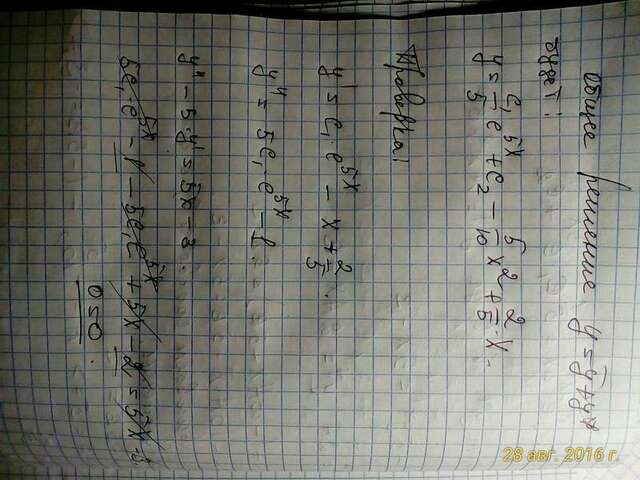 общее решение y = ȳ + y*
будет:
y = C₁/5 e^5x + C₂ - 5/10 x² + 2/5 · x.
Проверка:
y' = C₁ · e^5x - x + 2/5.
y'' = 5C₁ · e^5x - 1.
y'' - 5 · y' = 5x - 3.
5C₁ · e^5x - 1 - 5C₁e^5x + 5x - 2 = 5x - 3.
0 = 0.
28 авг. 2016 г.